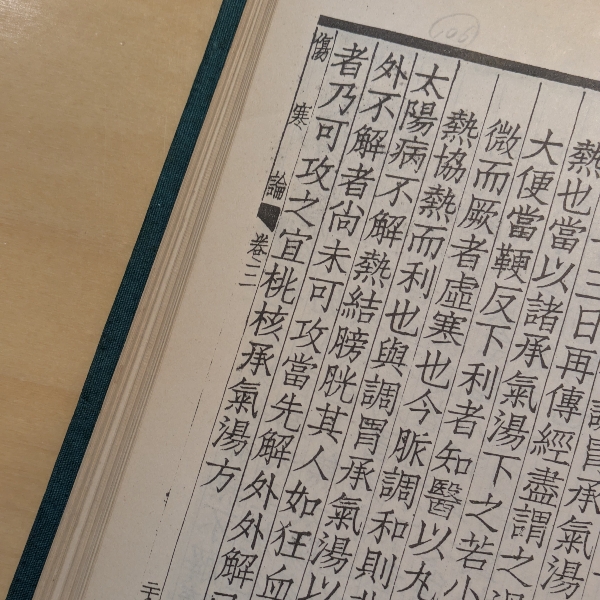 胃承氣湯
三日再傳經盡謂之
熱也當以諸承氣湯下之若小
大便當鞕反下利者知醫以丸
微而厥者虛寒也今脈調和則
熱協熱而利也與調胃承氣湯以
太陽病不解熱結膀胱其人如狂血
外不解者尚未可攻當先解外外解
者乃可攻之宜桃核承氣湯方
傷寒論 卷三